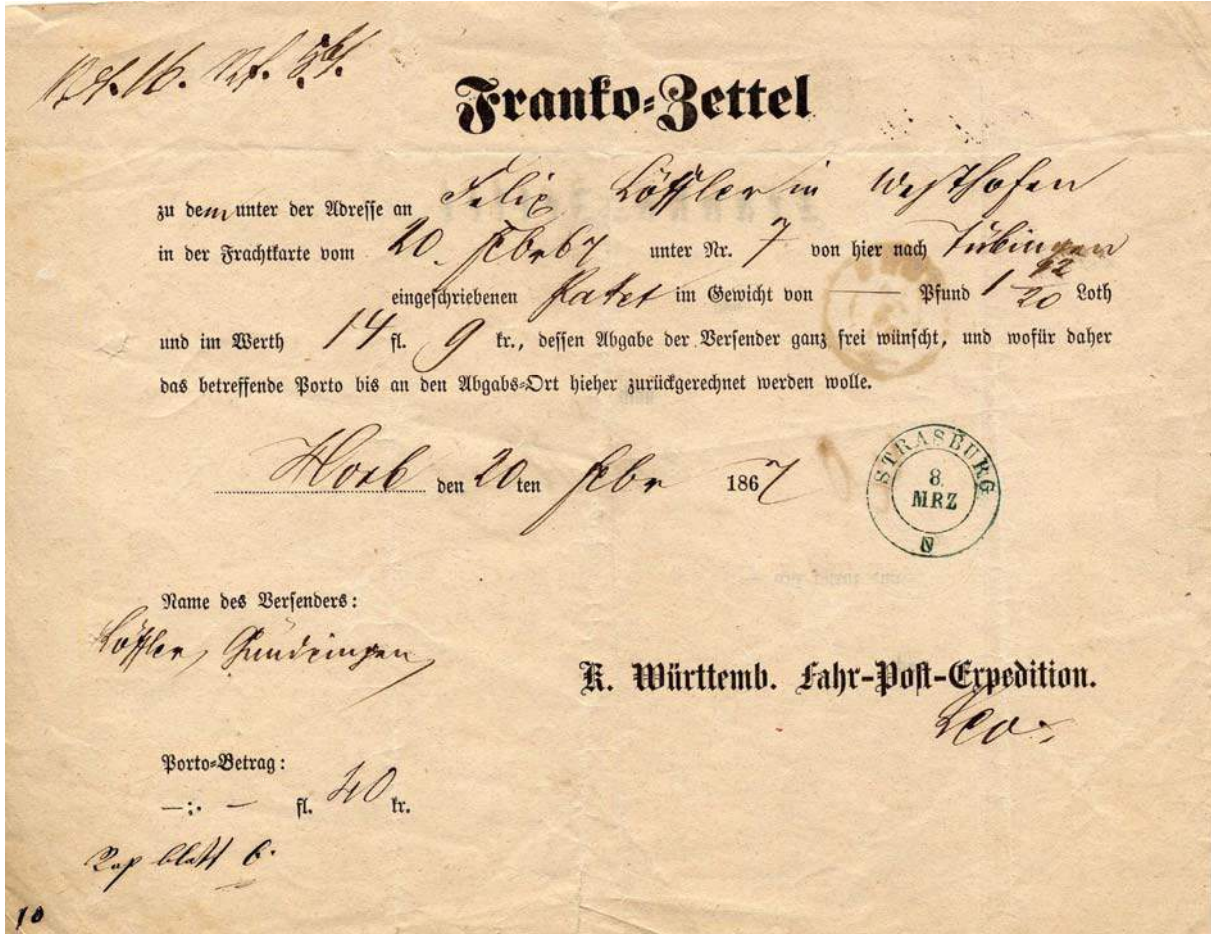 Franko-Zettel
zu dem unter der Adresse an Felix Löffler in Westhofen
in der Frachtkarte vom 20. Febr 67 unter Nr. 7 von hier nach Tübingen
eingeschriebenen Paket im Gewicht von — Pfund 1 12/20 Loth
und im Werth 14 fl. 9 kr., dessen Abgabe der Versender ganz frei wünscht, und wofür daher
das betreffende Porto bis an den Abgabs-Ort hieher zurückgerechnet werden wolle.
Horb den 20ten Febr 1867
STRASBURG
8.
MRZ
N
Name des Versenders:
Löffler, Gündringen
K. Württemb. Fahr-Post-Expedition.
Porto-Betrag:
—:. — fl. 40 kr.
blatt 6.
10